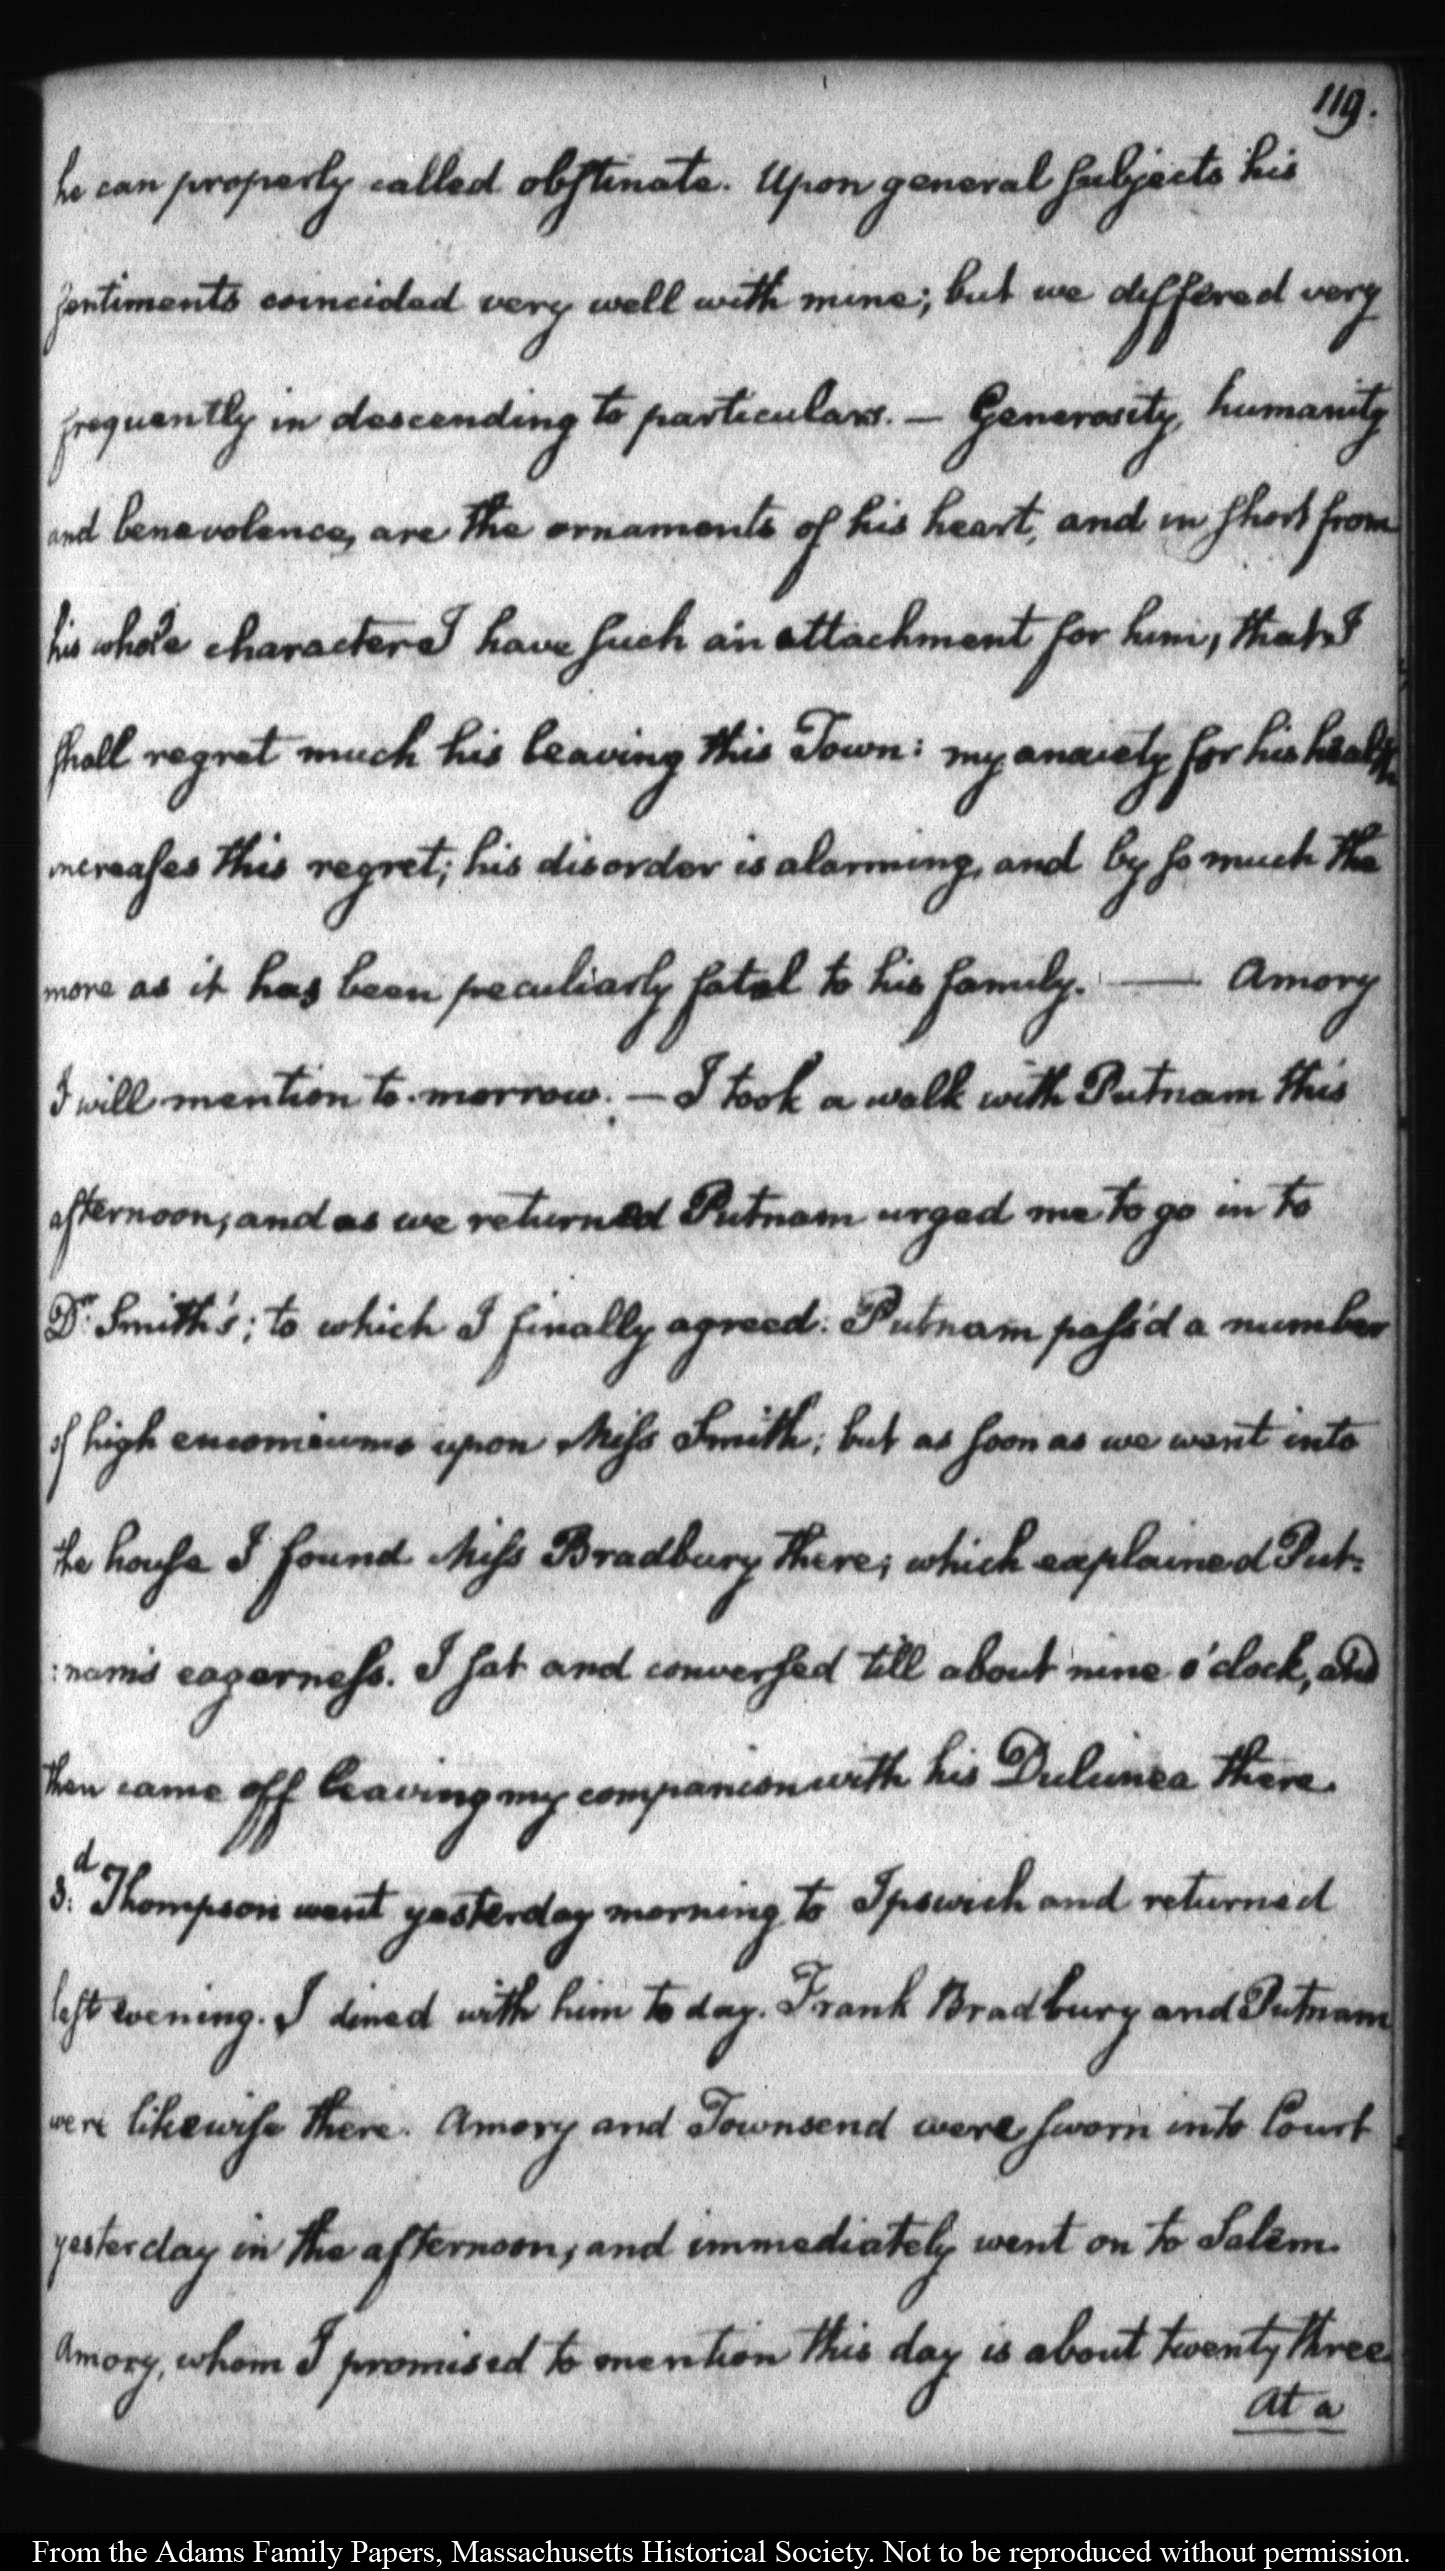 119.
he can properly called obstinate. Upon general subjects his
sentiments coincided very well with mine; but we differed very
frequently in descending to particulars. — Generosity, humanity
and benevolence, are the ornaments of his heart, and in short from
his whole character I have such an attachment for him, that I
shall regret much his leaving this Town: my anxiety for his health
increases this regret; his disorder is alarming, and by so much the
more as it has been peculiarly fatal to his family. — Amory
I will mention to-morrow. — I took a walk with Putnam this
afternoon, and as we returned Putnam urged me to go in to
Dr. Smith's; to which I finally agreed. Putnam pass'd a number
of high encomiums upon Miss Smith; but as soon as we went into
the house I found Miss Bradbury there; which explained Put:
:nam's eagerness. I sat and conversed till about nine o'clock, and
then came off leaving my companion with his Dulcinea there.
3d. Thompson went yesterday morning to Ipswich and returned
last evening. I dined with him to day. Frank Bradbury and Putnam
were likewise there. Amory and Townsend were sworn into Court
yesterday in the afternoon, and immediately went on to Salem.
Amory, whom I promised to mention this day is about twenty three.
At a
From the Adams Family Papers, Massachusetts Historical Society. Not to be reproduced without permission.